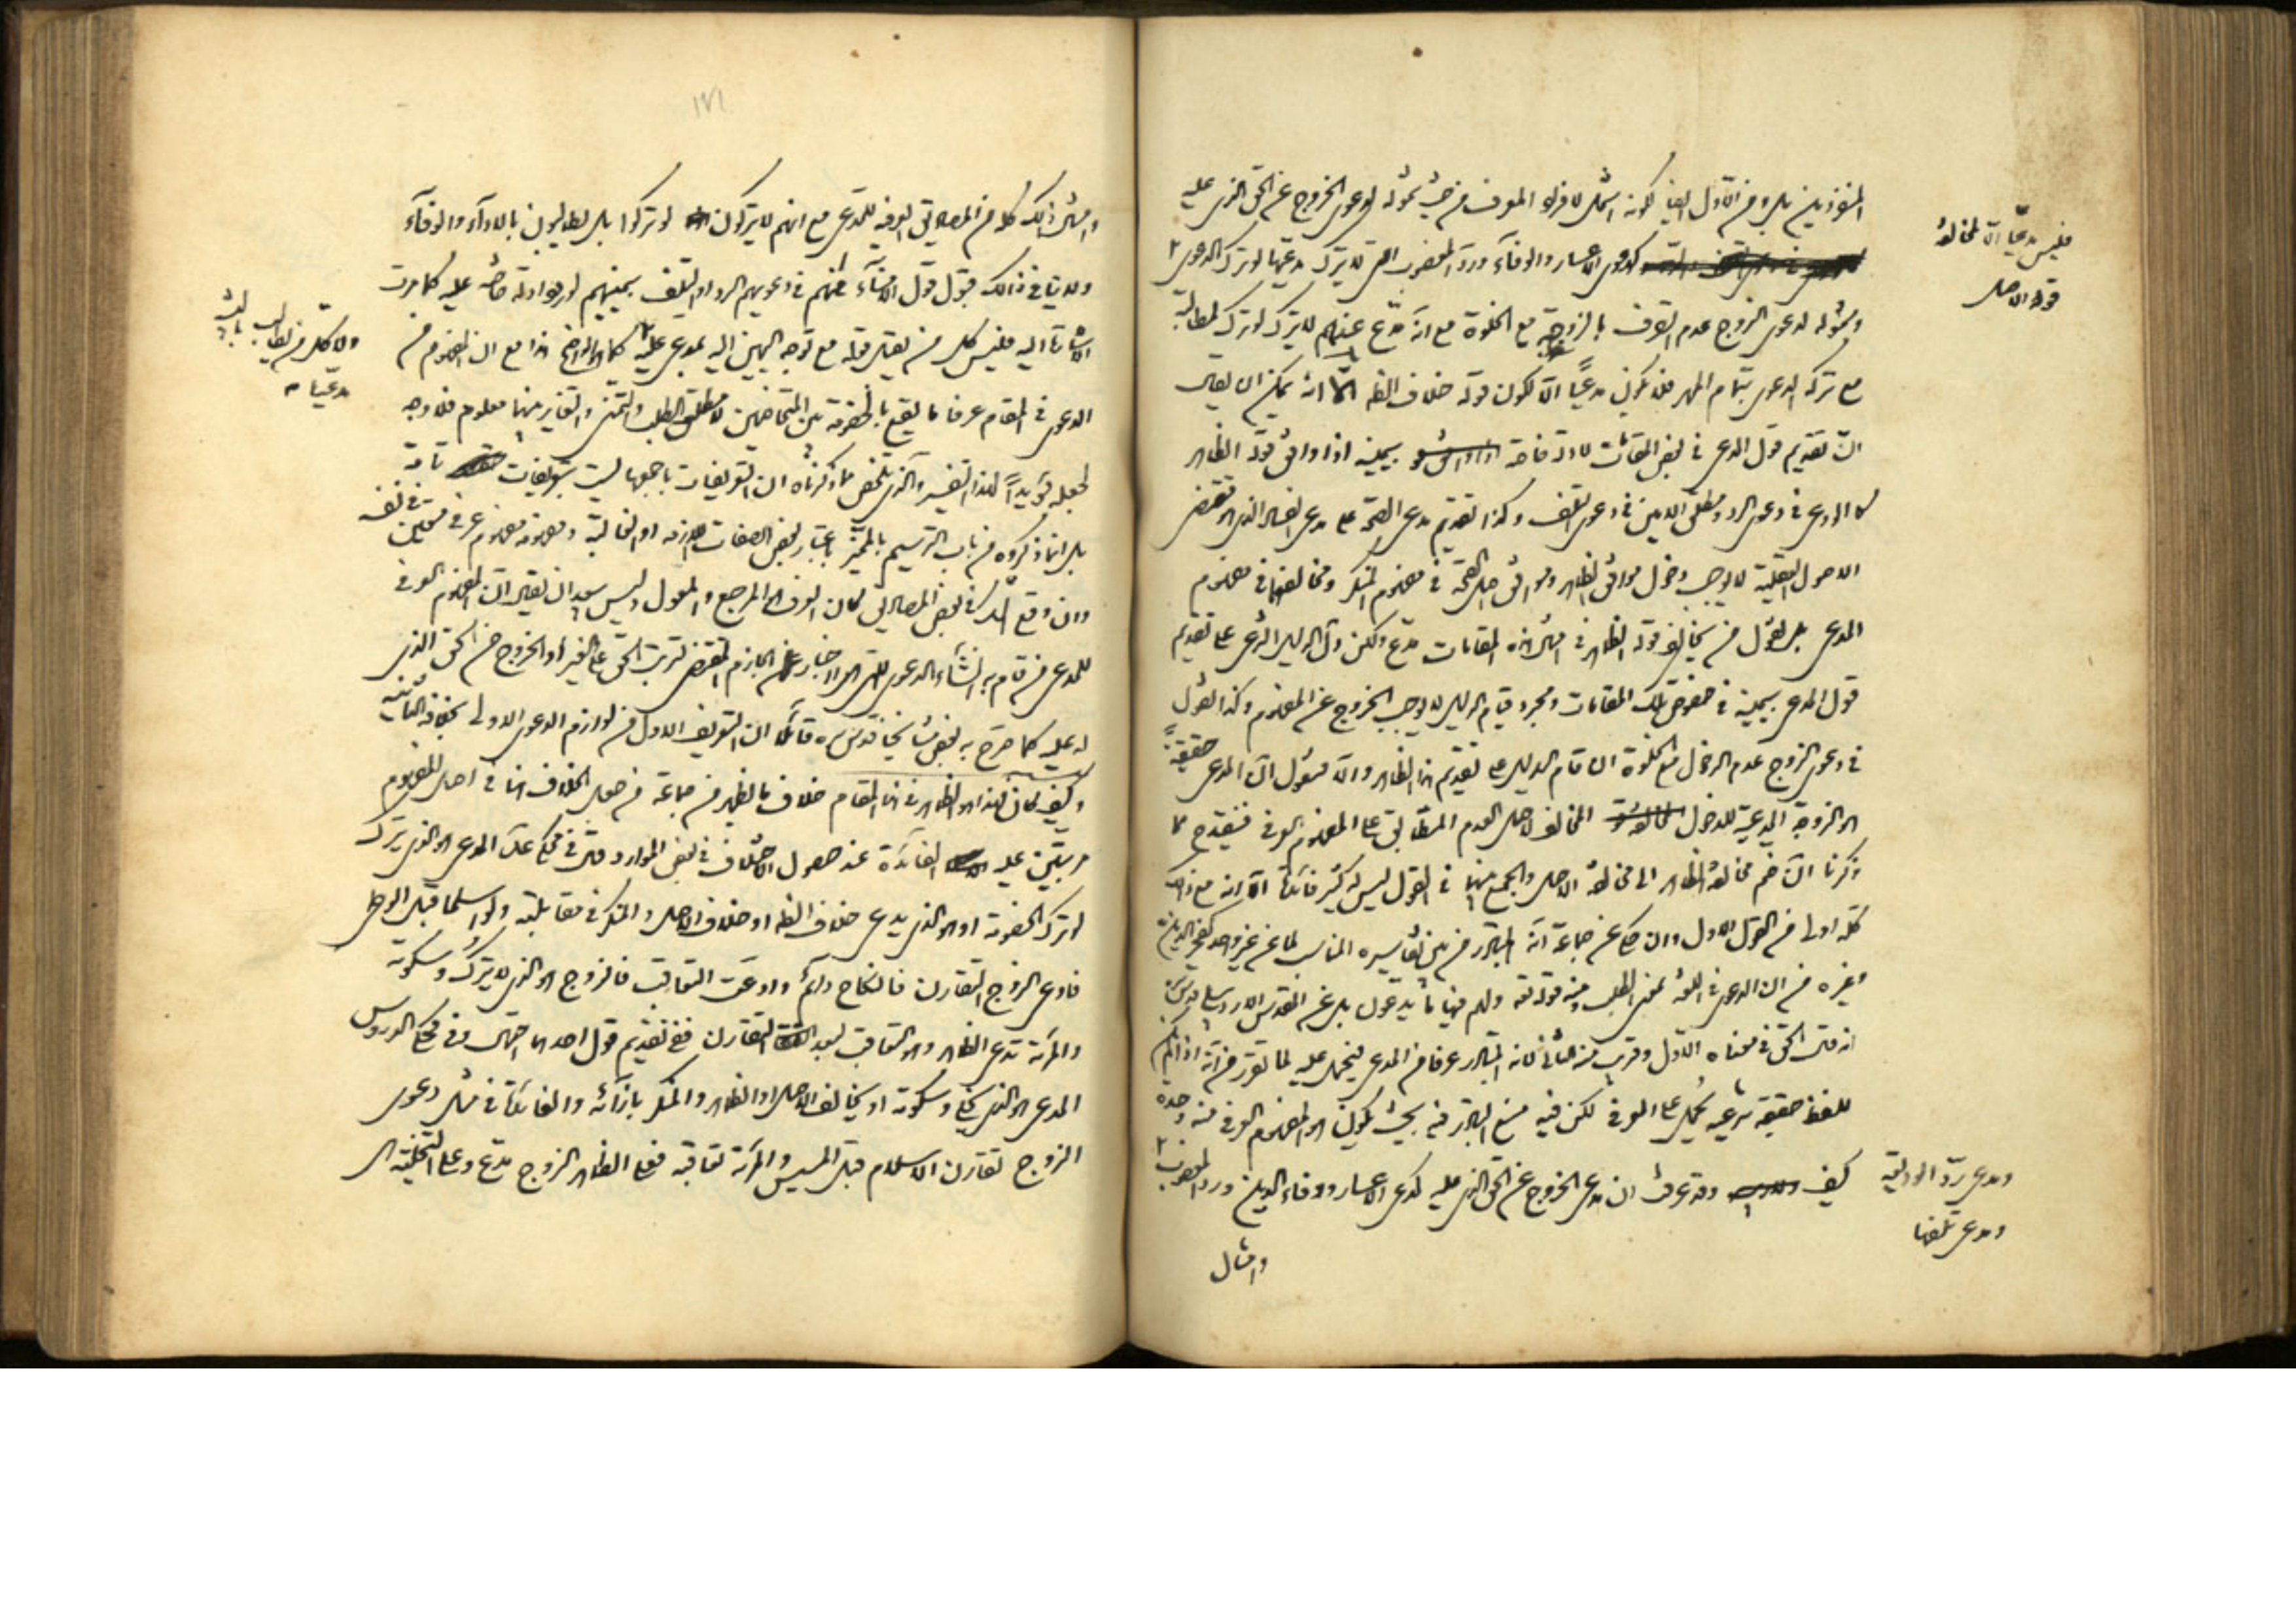 المنفردين بل ومن الأول ايضا لكونه اشمل لافراد المعرف من حيث شموله لدعوى الخروج عن الحق الذى عليه
كدعوى الاعسار والوفاء ورد المغصوب التى لا يترك مدعيها لو ترك الدعوى
وشموله لدعوى الزوج عدم التصرف بالزوجة مع الخلوة مع انه مدع عندهم لا يترك لو ترك لمطالبة
مع تركه الدعوى بتمام المهر فلا يكون مدعيا الا لكون قوله خلاف الظه الا انه يمكن ان يقال
ان تقديم قول المدعى فى بعض المقامات لادلة خاصة بيمينه اذا وافق قوله الظاهر
كالمدعى فى دعوى الرد ومطلق الامين فى دعوى التلف وكذا تقديم مدعى الصحة على مدعى الفساد الذى هو مقتضى
الاصول العقلية لا يوجب دخول موافق الظاهر وموافق اصل الصحة فى مفهوم المنكر ومخالفهما فى مفهوم
المدعى بل نقول من يخالف قوله الظاهر فى امثال هذه المقامات مدع ولكن دل الدليل الشرعى على تقديم
قول المدعى بيمينه فى خصوص تلك المقامات ومجرد قيام الدليل لا يوجب الخروج عن المفهوم وكذا نقول
فى دعوى الزوج عدم الدخول مع الخلوة ان قام الدليل على تقديم هذا الظاهر والا فنقول ان المدعى حقيقة
هو الزوجة المدعية للدخول المخالف لاصل العدم المطابق على المفهوم العرفى فينقدح مما
ذكرنا ان ضم مخالفة الظاهر الى مخالفة الاصل والجمع بينهما فى القول ليس له كثير فائدة الا انه مع ذلك
كله اولى من القول الاول وان حكى عن جماعة انه المتبادر من بين تفاسيره المناسب لما عن غير واحد كفخر الدين
وغيره من ان الدعوى فى اللغة بمعنى الطلب ومنه قوله تعه ولهم فيها ما يدعون بل عن المقدس الاردبيلى قدس سره
انه قال الحق فى معناه الاول وقريب منه الثانى لانه المتبادر عرفا من المدعى فيحمل عليه لما تقرر من انه اذا لم يكن
للفظ حقيقة شرعية يحمل على العرفى لكن فيه منع التبادر فيه بحيث يكون هو المفهوم العرفى منه وحده
كيف وقد عرفت ان مدعى الخروج عن الحق الذى عليه كمدعى الاعسار ووفاء الدين ورد المغصوب
وامثال
فليس مدعيا الا لمخالفة
قوله الاصل
ومدعى رد الوديعة
ومدعى تلفها
١٧١
وامثال ذلك كله من المصاديق العرفيه للمدعى مع انهم لا يتركون لو تركوا بل يطالبون بالاداء والوفاء
ولا ينافى ذلك قبول قول الامناء منهم فى دعويهم الرد او التلف بيمينهم لورود ادلة خاصة عليه كما مرت
الاشارة اليه فليس كل من يقبل قوله مع توجه اليمين اليه بمدعى عليه كما هو الواضح هذا مع ان المفهوم من
الدعوى فى المقام عرفا ما يقع بالخصومة بين المتخاصمين لا مطلق الطلب والتمنى والتغاير بينهما معلوم فلا وجه
لجعله مؤيدا لهذا التفسير والذى يتلخص مما ذكرناه ان التعريفات باجمعها ليست بتعريفات تامة
بل انما ذكروه من باب الترسيم بالمميز باعتبار بعض الصفات اللازمة او الغالبية ومفهومه مفهوم عرفى مستبين فى نفسه
وان وقع الشك فى بعض المصاديق لكان العرف هو المرجع والمعول وليس ببعيد ان يقال ان المفهوم العرفى
للمدعى من قام به انشاء الدعوى التى هى الاخبار الجازم المقتضى لترتب الحق على الغير او الخروج من الحق الذى
له عليه كما صرح به بعض مشايخنا قدس سره قائلا ان التعريف الاول من لوازم الدعوى الاولى بخلاف الثانية
وكيف كان فهذا هو الظاهر فى هذا المقام خلاف ما يظهر من جماعة من جعل الخلاف هنا فى اصل المفهوم
مرتبين عليه الفائدة عند حصول الاختلاف فى بعض الموارد قال فى محكى عد المدعى هو الذى يترك
لو ترك الخصومة او هو الذى يدعى خلاف الظه او خلاف الاصل والمنكر فى مقابلته ولو اسلما قبل الوطى
فادعى الزوج التقارن فالنكاح دائم وادعت التعاقب فالزوج هو الذى لا يترك وسكوته
والمراة تدعى الظاهر وهو التعاقب لبعد التقارن ففى تقديم قول احدهما احتمال وفى محكى الدروس
المدعى هو الذى يخلى وسكوته او يخالف الاصل او الظاهر والمنكر بازائه والفائدة فى مثل دعوى
الزوج تقارن الاسلام قبل المسيس والمراة تعاقبه فعلى الظاهر الزوج مدع وعلى التخلية هى
والا لكل من يطالب
مدعيا